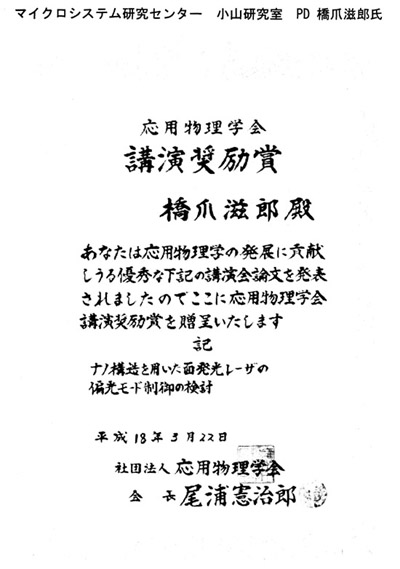 マイクロシステム研究センター　小山研究室　PD 橋爪滋郎氏
応用物理学会
講演奨励賞
橋爪滋郎殿
あなたは応用物理学の発展に貢献
しうる優秀な下記の講演会論文を発表
されましたのでここに応用物理学会
講演奨励賞を贈呈いたします
記
ナノ構造を用いた面発光レーザの
偏光モード制御の検討
平成18年3月22日
社団法人 応用物理学会
会　長 尾浦憲治郎